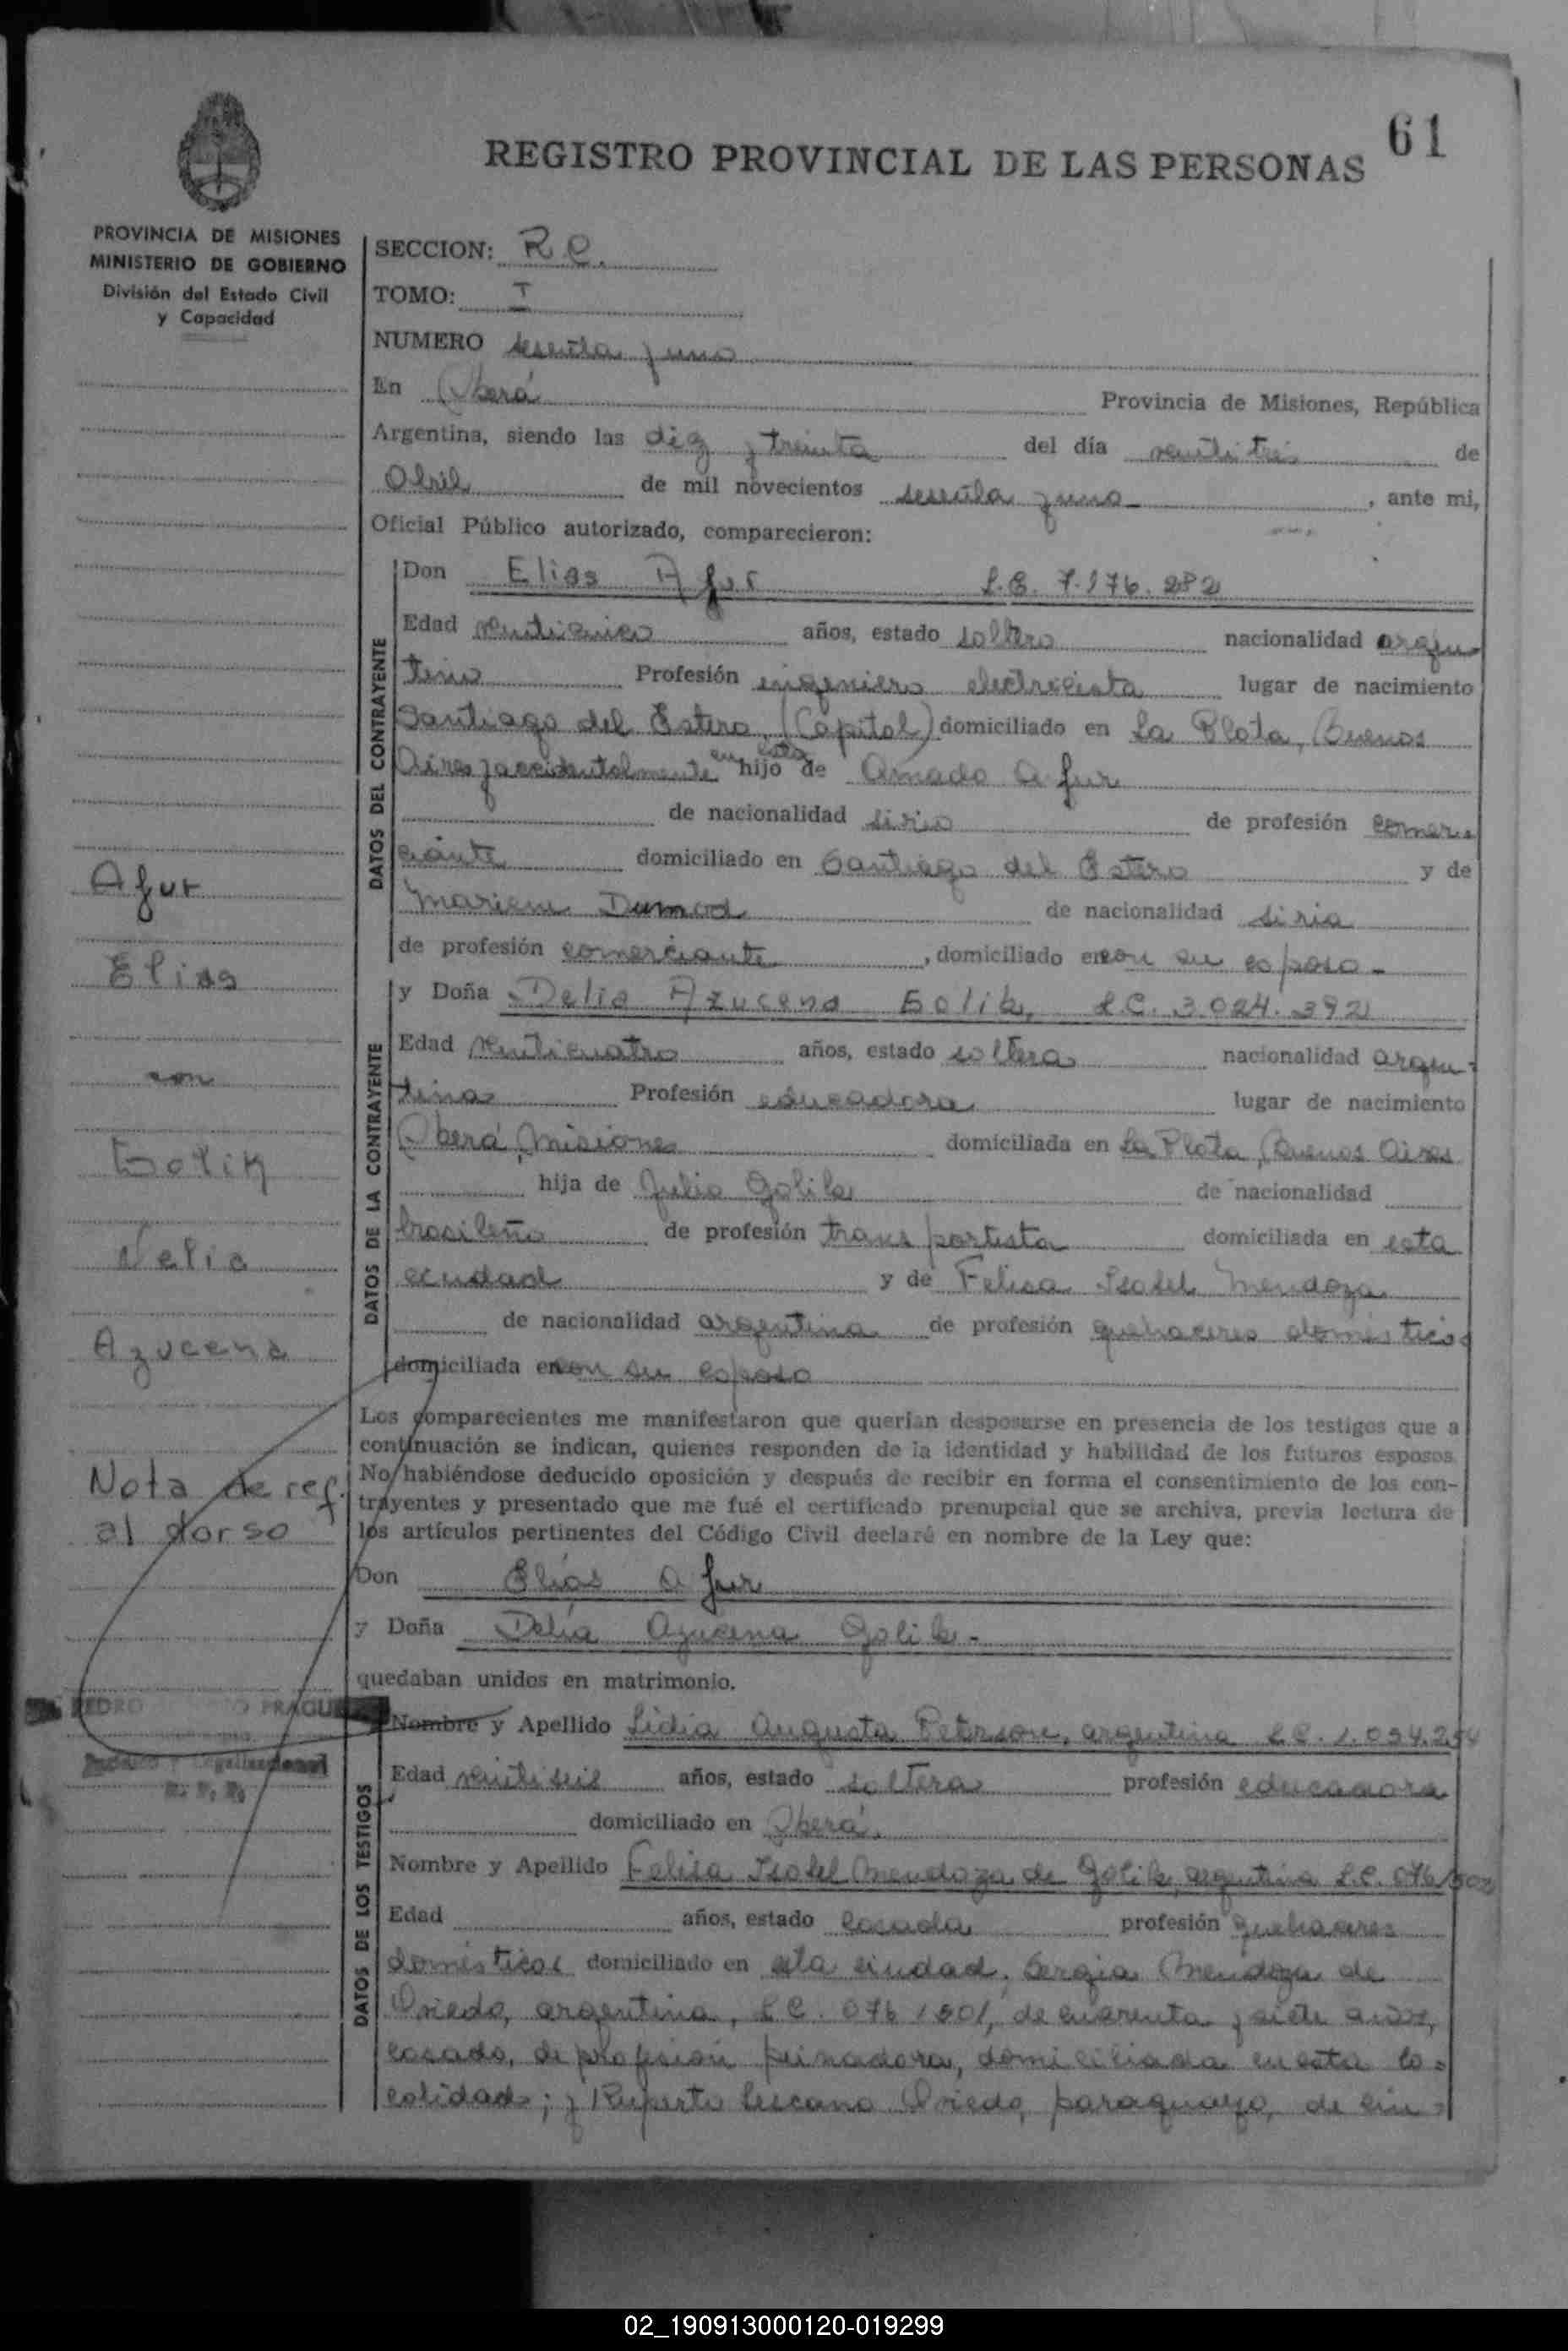 61
REGISTRO PROVINCIAL DE LAS PERSONAS
PROVINCIA DE MISIONES
MINISTERIO DE GOBIERNO
División del Estado Civil
y Capacidad
SECCION: R C.
TOMO: I
NUMERO sesenta y uno
En Oberá Provincia de Misiones, República
Argentina, siendo las diez y treinta del día veintitres de
Abril de mil novecientos sesenta y uno , ante mi,
Oficial Público autorizado, comparecieron:
DATOS DEL CONTRAYENTE
Don Elias Afur L.E. 7.176.282
Edad veinticinco años, estado soltero nacionalidad argen
tino Profesión ingeniero electricista lugar de nacimiento
Santiago del Estero, (Capital) domiciliado en La Plata, Buenos
Aires y accidentalmente en esta hijo de Amado Afur
de nacionalidad sirio de profesión comer
ciante domiciliado en Santiago del Estero y de
Mariem Dumod de nacionalidad siria
de profesión comerciante , domiciliado en con su esposo -
DATOS DE LA CONTRAYENTE
y Doña Delia Azucena Golik, L.C. 3.024.392
Edad veinticuatro años, estado soltera nacionalidad argen-
tina Profesión educadora lugar de nacimiento
Oberá, Misiones domiciliada en La Plata, Buenos Aires
hija de Julio Golik de nacionalidad
brasileño de profesión transportista domiciliada en esta
ciudad y de Felisa Isabel Mendoza
de nacionalidad argentina de profesión quehaceres domésticos
domiciliada en con su esposo
Los comparecientes me manifestaron que querían desposarse en presencia de los testigos que a
continuación se indican, quienes responden de la identidad y habilidad de los futuros esposos.
No habiéndose deducido oposición y después de recibir en forma el consentimiento de los con-
trayentes y presentado que me fué el certificado prenupcial que se archiva, previa lectura de
los artículos pertinentes del Código Civil declaré en nombre de la Ley que:
Don Elías Afur
y Doña Delia Azucena Golik -
quedaban unidos en matrimonio.
DATOS DE LOS TESTIGOS
Nombre y Apellido Lidia Augusta Peterson, argentina L.C.
Edad veintiseis años, estado soltera profesión educadora
domiciliado en Oberá.
Nombre y Apellido Felisa Isabel Mendoza de Golik, argentina L.C.
Edad años, estado casada profesión quehaceres
domésticos domiciliado en esta ciudad, Sergia Mendoza de
Oviedo, argentina, L.C. de cuarenta y siete años,
casado, de profesión peinadora, domiciliada en esta lo-
calidad; y Ruperto Lescano Oviedo, paraguayo, de cin-
Afur
Elias
con
Golik
Delia
Azucena
Nota de ref.
al dorso
PEDRO
02_190913000120-019299